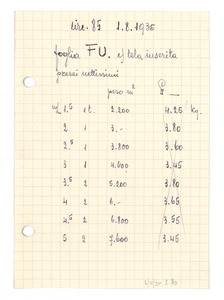 circ. 85 1.8.1935
foglia FU. c/ tela inserita
prezzi nettissimi
peso m²
m/m 1.5 1 t. 2.200 4.25 kg.
2 1 3.- 3.80
2.5 1 3.800 3.60
3 1 4.600 3.45
3.5 2 5.200 3.80
4 2 6.- 3.65
4.5 2 6.800 3.55
5 2 7.600 3.45